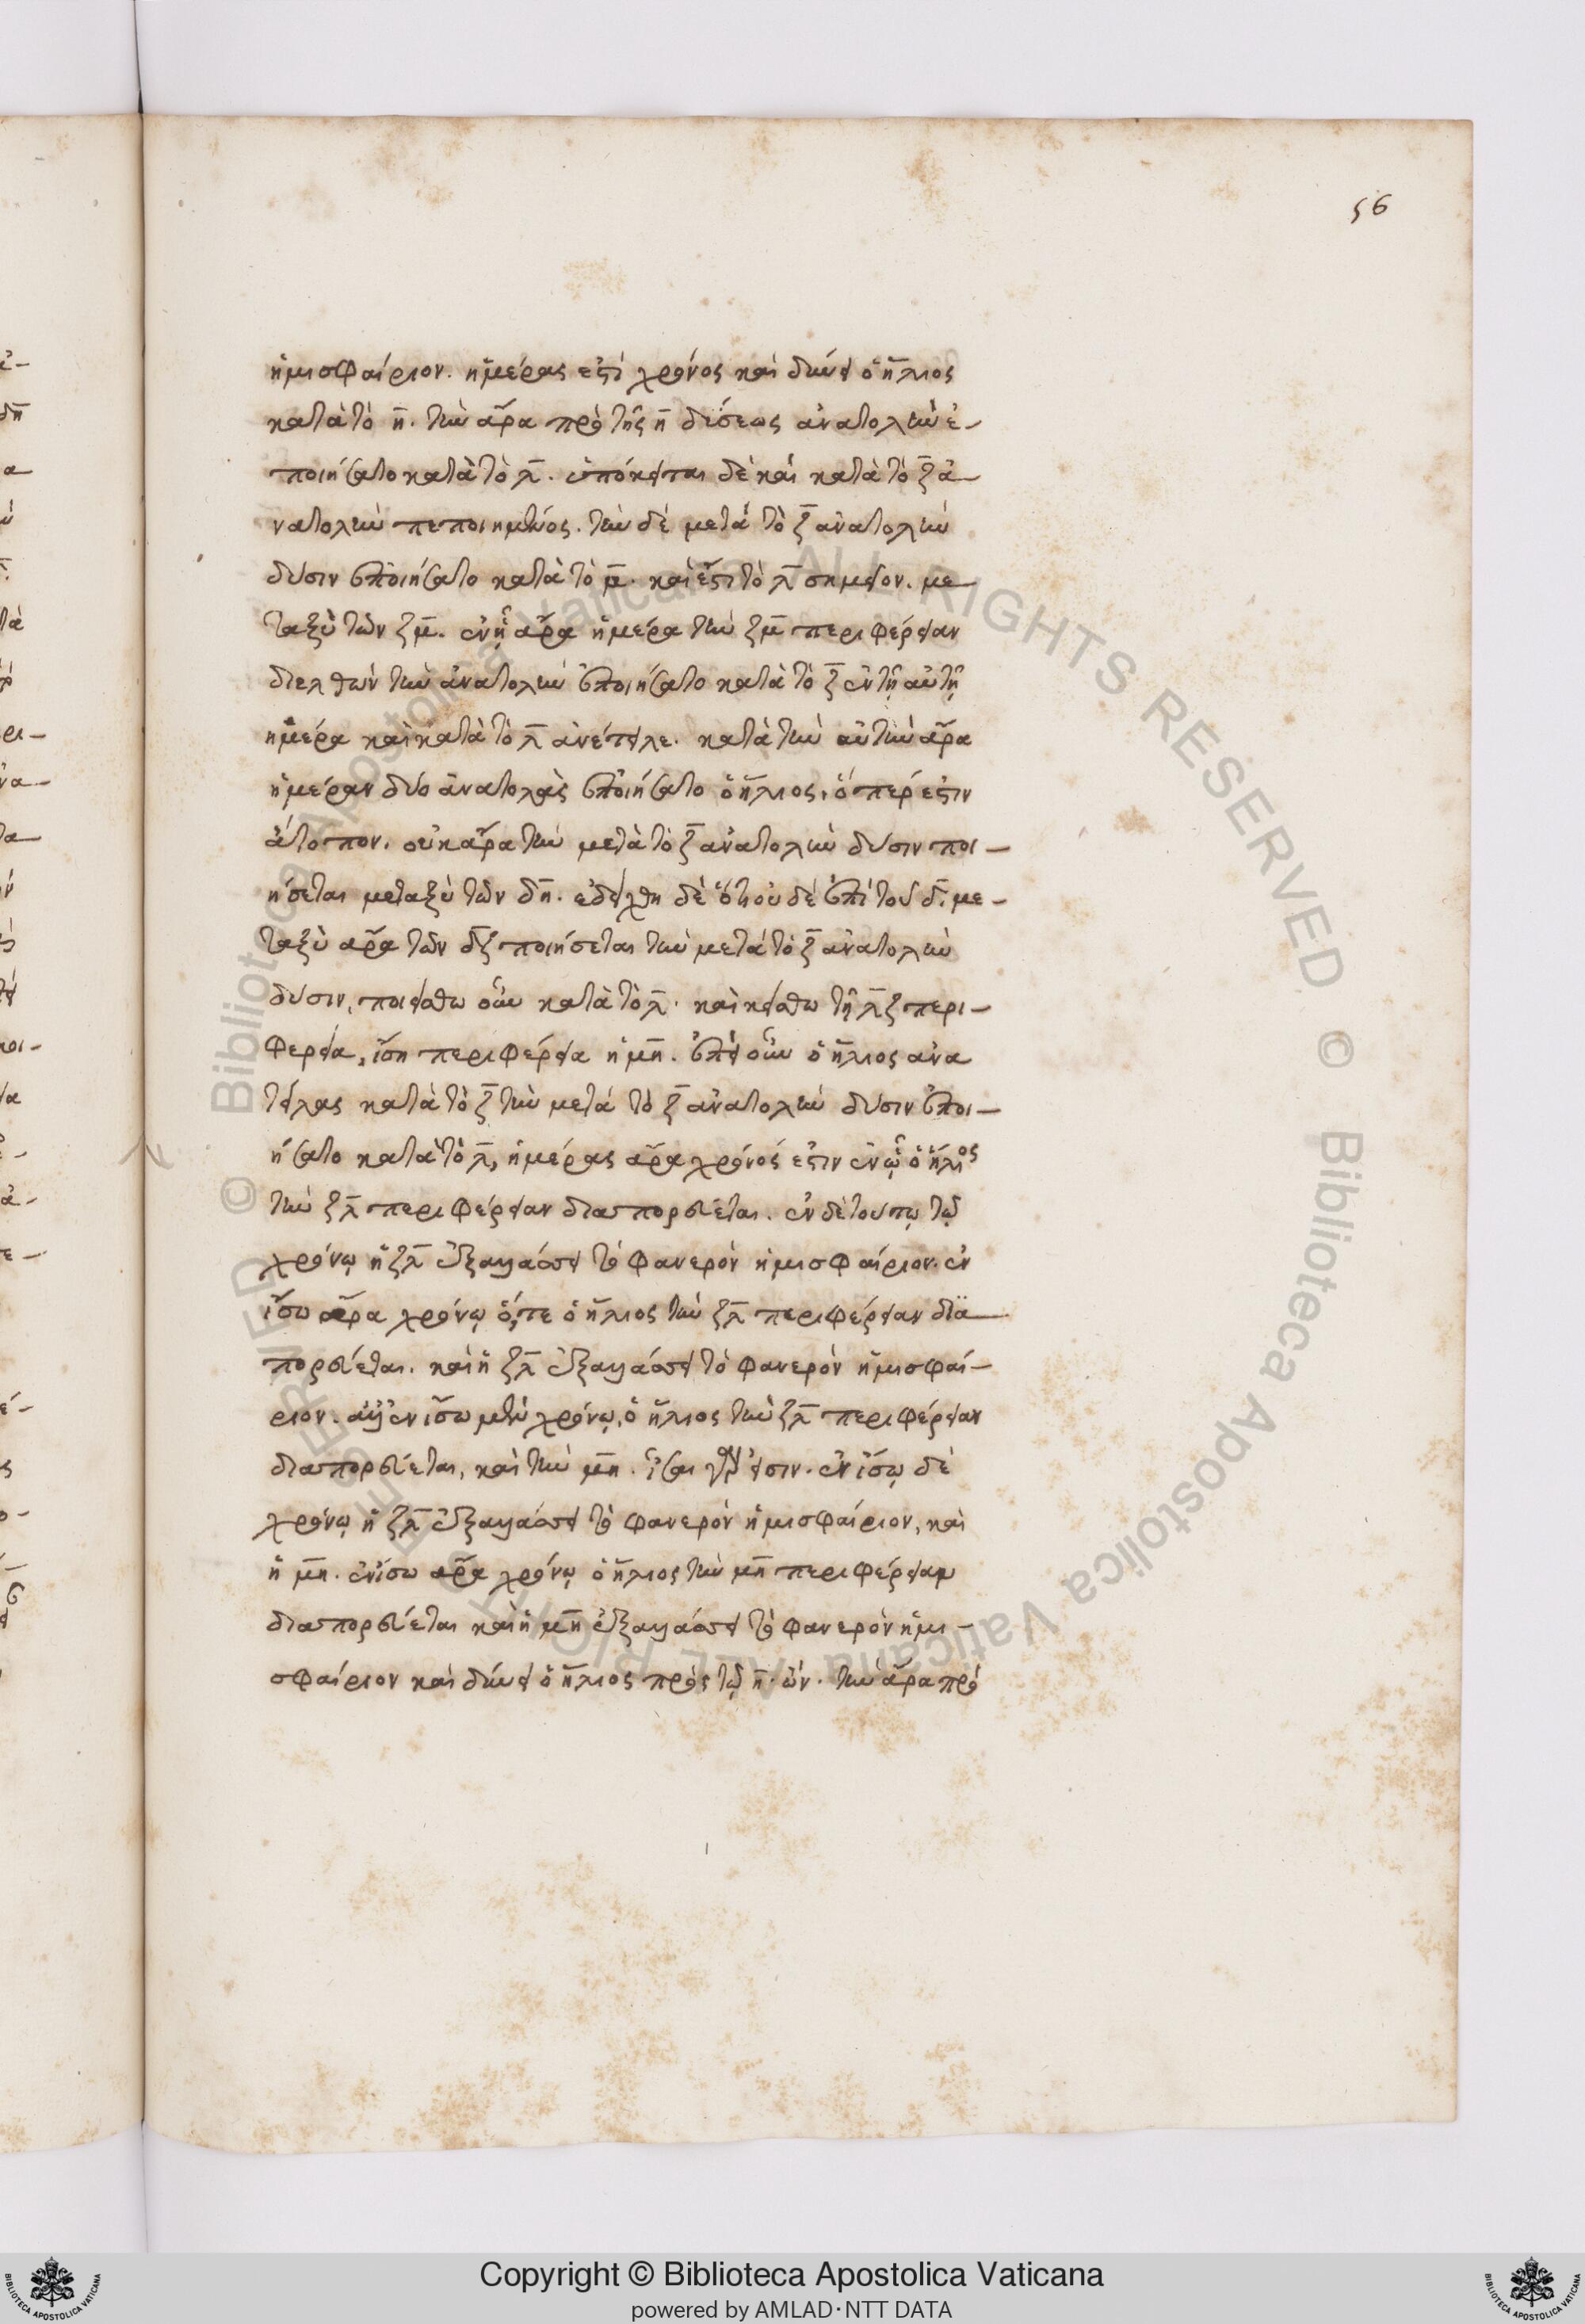 56
ἡμισφαίριον. ἡμέρας ἐστὶ χρόνος καὶ δύνει ὁ ἥλιος
κατὰ τὸ η̄. τὴν ἄρα πρὸ τῆς η̄ δύσεως ἀνατολὴν ἐ-
ποιήσατο κατὰ τὸ λ̄. ὑπόκειται δὲ καὶ κατὰ τὸ ξ̄ ἀ-
νατολὴν πεποιημένος. τὴν δὲ μετὰ τὸ ξ̄ ἀνατολὴν
δύσιν ἐποιήσατο κατὰ τὸ μ̄. καὶ ἔστι τὸ λ̄ σημεῖον. με
ταξὺ τῶν ξμ̄. ἐν ᾗ ἄρα ἡμέρα τὴν ξμ̄ περιφέρειαν
διελθὼν τὴν ἀνατολὴν ἐποιήσατο κατὰ τὸ ξ̄ ἐν τῇ αὐτῇ
ἡμέρα καὶ κατὰ τὸ λ̄ ἀνέτειλε. κατὰ τὴν αὐτὴν ἄρα
ἡμέραν δύο ἀνατολὰς ἐποιήσατο ὁ ἥλιος, ὅπερ ἐστιν
ἄτοπον. οὐκ ἄρα τὴν μετὰ τὸ ξ̄ ἀνατολὴν δύσιν ποι-
ήσεται μεταξὺ τῶν δη̄. ἐδείχθη δὲ ὅτι οὐδὲ ἐπὶ τοῦ δ̄. με-
ταξὺ ἄρα τῶν δξ̄ ποιήσεται τὴν μετὰ τὸ ξ̄ ἀνατολὴν
δύσιν, ποιείσθω οὖν κατὰ τὸ λ̄. καὶ κείσθω τῇ λ̄ξ περι-
φερεία, ἴση περιφέρεια ἡ μη̄. ἐπεὶ οὖν ὁ ἥλιος ἀνα
τείλας κατὰ τὸ ξ̄ τὴν μετὰ τὸ ξ̄ ἀνατολὴν δύσιν ἐποι-
ήσατο κατὰ τὸ λ̄, ἡμέρας ἄρα χρόνος ἐστιν ἐν ᾧ ὁ ἥλιος
τὴν ξλ̄ περιφέρειαν διαπορεύεται. ἐν δὲ τουτῳ τῷ
χρόνῳ ἡ ξλ̄ ἐξαλλάσσει τὸ φανερὸν ἡμισφαίριον. ἐν
ἴσω ἄρα χρόνῳ ὅ,τε ὁ ἥλιος τὴν ξλ̄ περιφέρειαν δια
πορεύεται. καὶ ἡ ξλ̄ ἐξαλλάσσει τὸ φανερὸν ἡμισφαί-
ριον. ἀλλ' ἐν ἴσω μὲν χρόνῳ, ὁ ἥλιος τὴν ξλ̄ περιφέρειαν
διαπορεύεται, καὶ τὴν μη̄. ἴσαι γάρ εἰσιν. ἐν ἴσῳ δὲ
χρόνῳ ἡ ξλ̄ ἐξαλλάσσει τὸ φανερὸν ἡμισφαίριον, καὶ
ἡ μη̄. ἐν ἴσω ἄρα χρόνῳ ὁ ἥλιος τὴν μη̄ περιφέρειαν
διαπορεύεται καὶ ἡ μη̄ ἐξαλλάσσει τὸ φανερὸν ἡμι-
σφαίριον καὶ δύνει ὁ ἥλιος πρὸς τῷ η̄. ὤν. τὴν ἄρα πρὸ
Copyright © Biblioteca Apostolica Vaticana
powered by AMLAD·NTT DATA